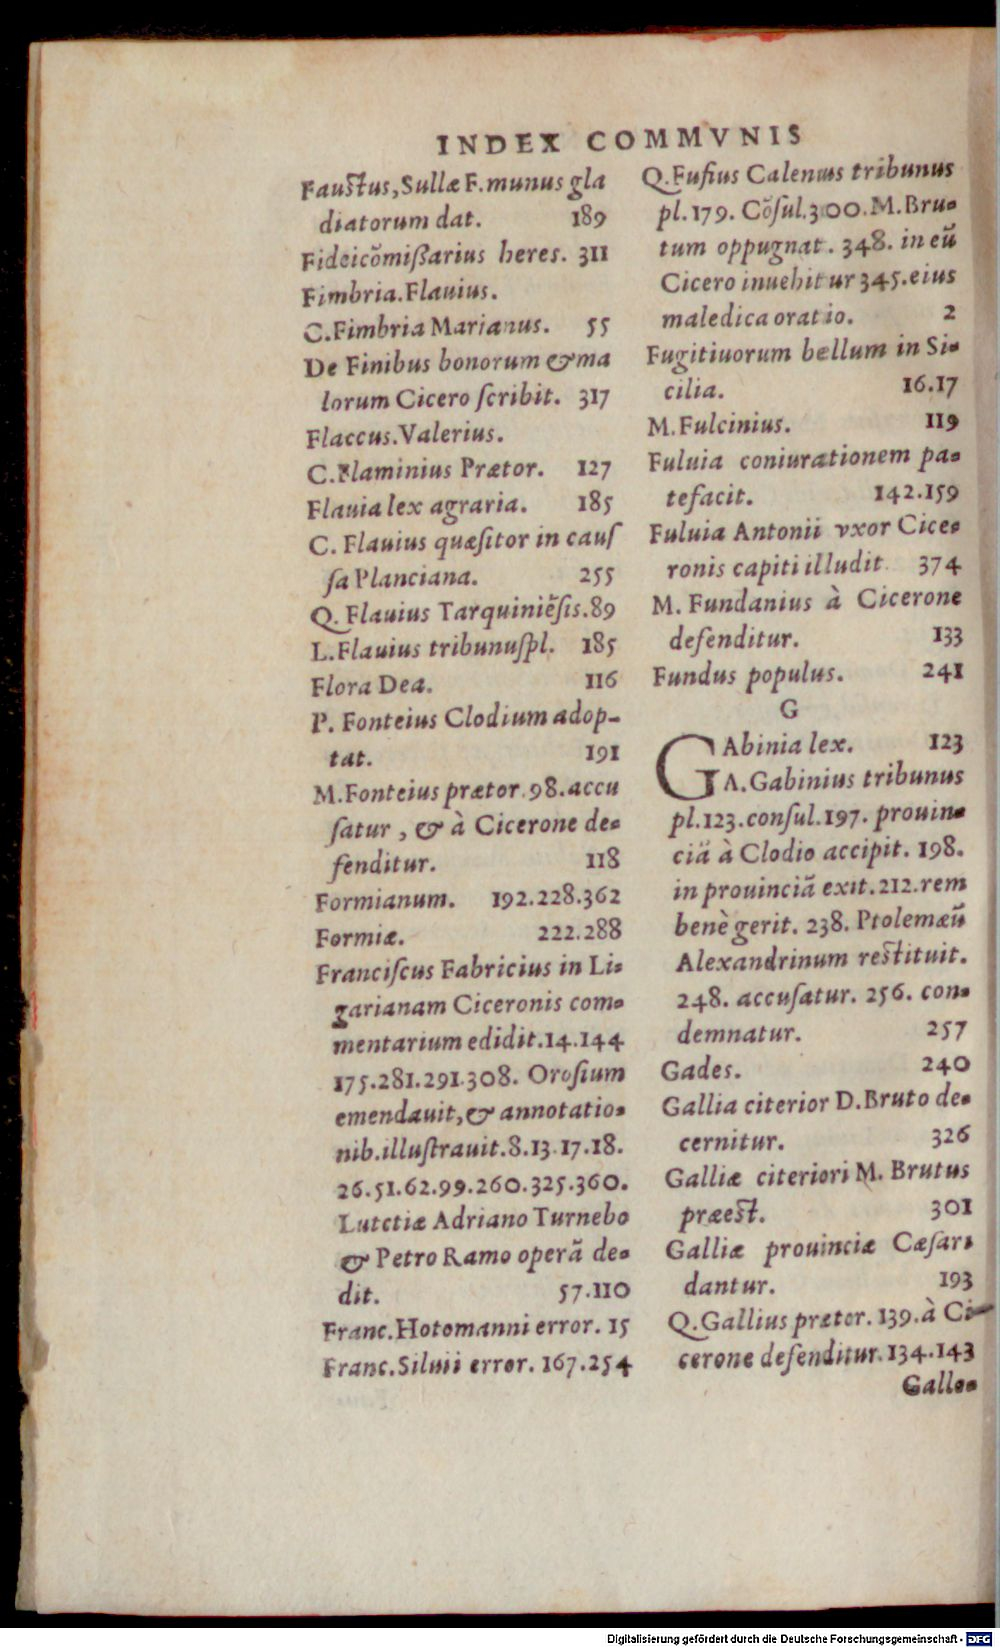 INDEX COMMVNIS
Faustus, Sullæ F. munus gla
diatorum dat. 189
Fideicõmißarius heres. 311
Fimbria. Flauius.
C. Fimbria Marianus. 55
De Finibus bonorum & ma
lorum Cicero ſcribit. 317
Flaccus. Valerius.
C. Flaminius Prætor. 127
Flauia lex agraria. 185
C. Flauius quæſitor in cauſ
ſa Planciana. 255
Q. Flauius Tarquiniẽſis. 89
L. Flauius tribunuſpl. 185
Flora Dea. 116
P. Fonteius Clodium adop-
tat. 191
M. Fonteius prætor. 98. accu
ſatur, & à Cicerone de-
fenditur. 118
Formianum. 192.228.362
Formiæ. 222.288
Franciſcus Fabricius in Li-
garianam Ciceronis com-
mentarium edidit. 14.144
175.281.291.308. Oroſium
emendauit, & annotatio-
nib. illuſtrauit. 8.13.17.18.
26.51.62.99.260.325.360.
Lutetiæ Adriano Turnebo
& Petro Ramo operã de-
dit. 57.110
Franc. Hotomanni error. 15
Franc. Siluii error. 167.254
Q. Fufius Calenus tribunus
pl. 179. Cõſul. 300. M. Bru-
tum oppugnat. 348. in eũ
Cicero inuehitur 345. eius
maledica oratio. 2
Fugitiuorum bellum in Si-
cilia. 16.17
M. Fulcinius. 119
Fuluia coniurationem pa-
tefacit. 142.159
Fuluia Antonii vxor Cice-
ronis capiti illudit 374
M. Fundanius à Cicerone
defenditur. 133
Fundus populus. 241
G
GAbinia lex. 123
A. Gabinius tribunus
pl. 123. conſul. 197. prouin-
ciã à Clodio accipit. 198.
in prouinciã exit. 212. rem
benè gerit. 238. Ptolemæũ
Alexandrinum restituit.
248. accuſatur. 256. con-
demnatur. 257
Gades. 240
Gallia citerior D. Bruto de-
cernitur. 326
Galliæ citeriori M. Brutus
præest. 301
Galliæ prouinciæ Cæſari
dantur. 193
Q. Gallius prætor. 139. à Ci-
cerone defenditur. 134.143
Gallo-
Digitalisierung gefördert durch die Deutsche Forschungsgemeinschaft - DFG